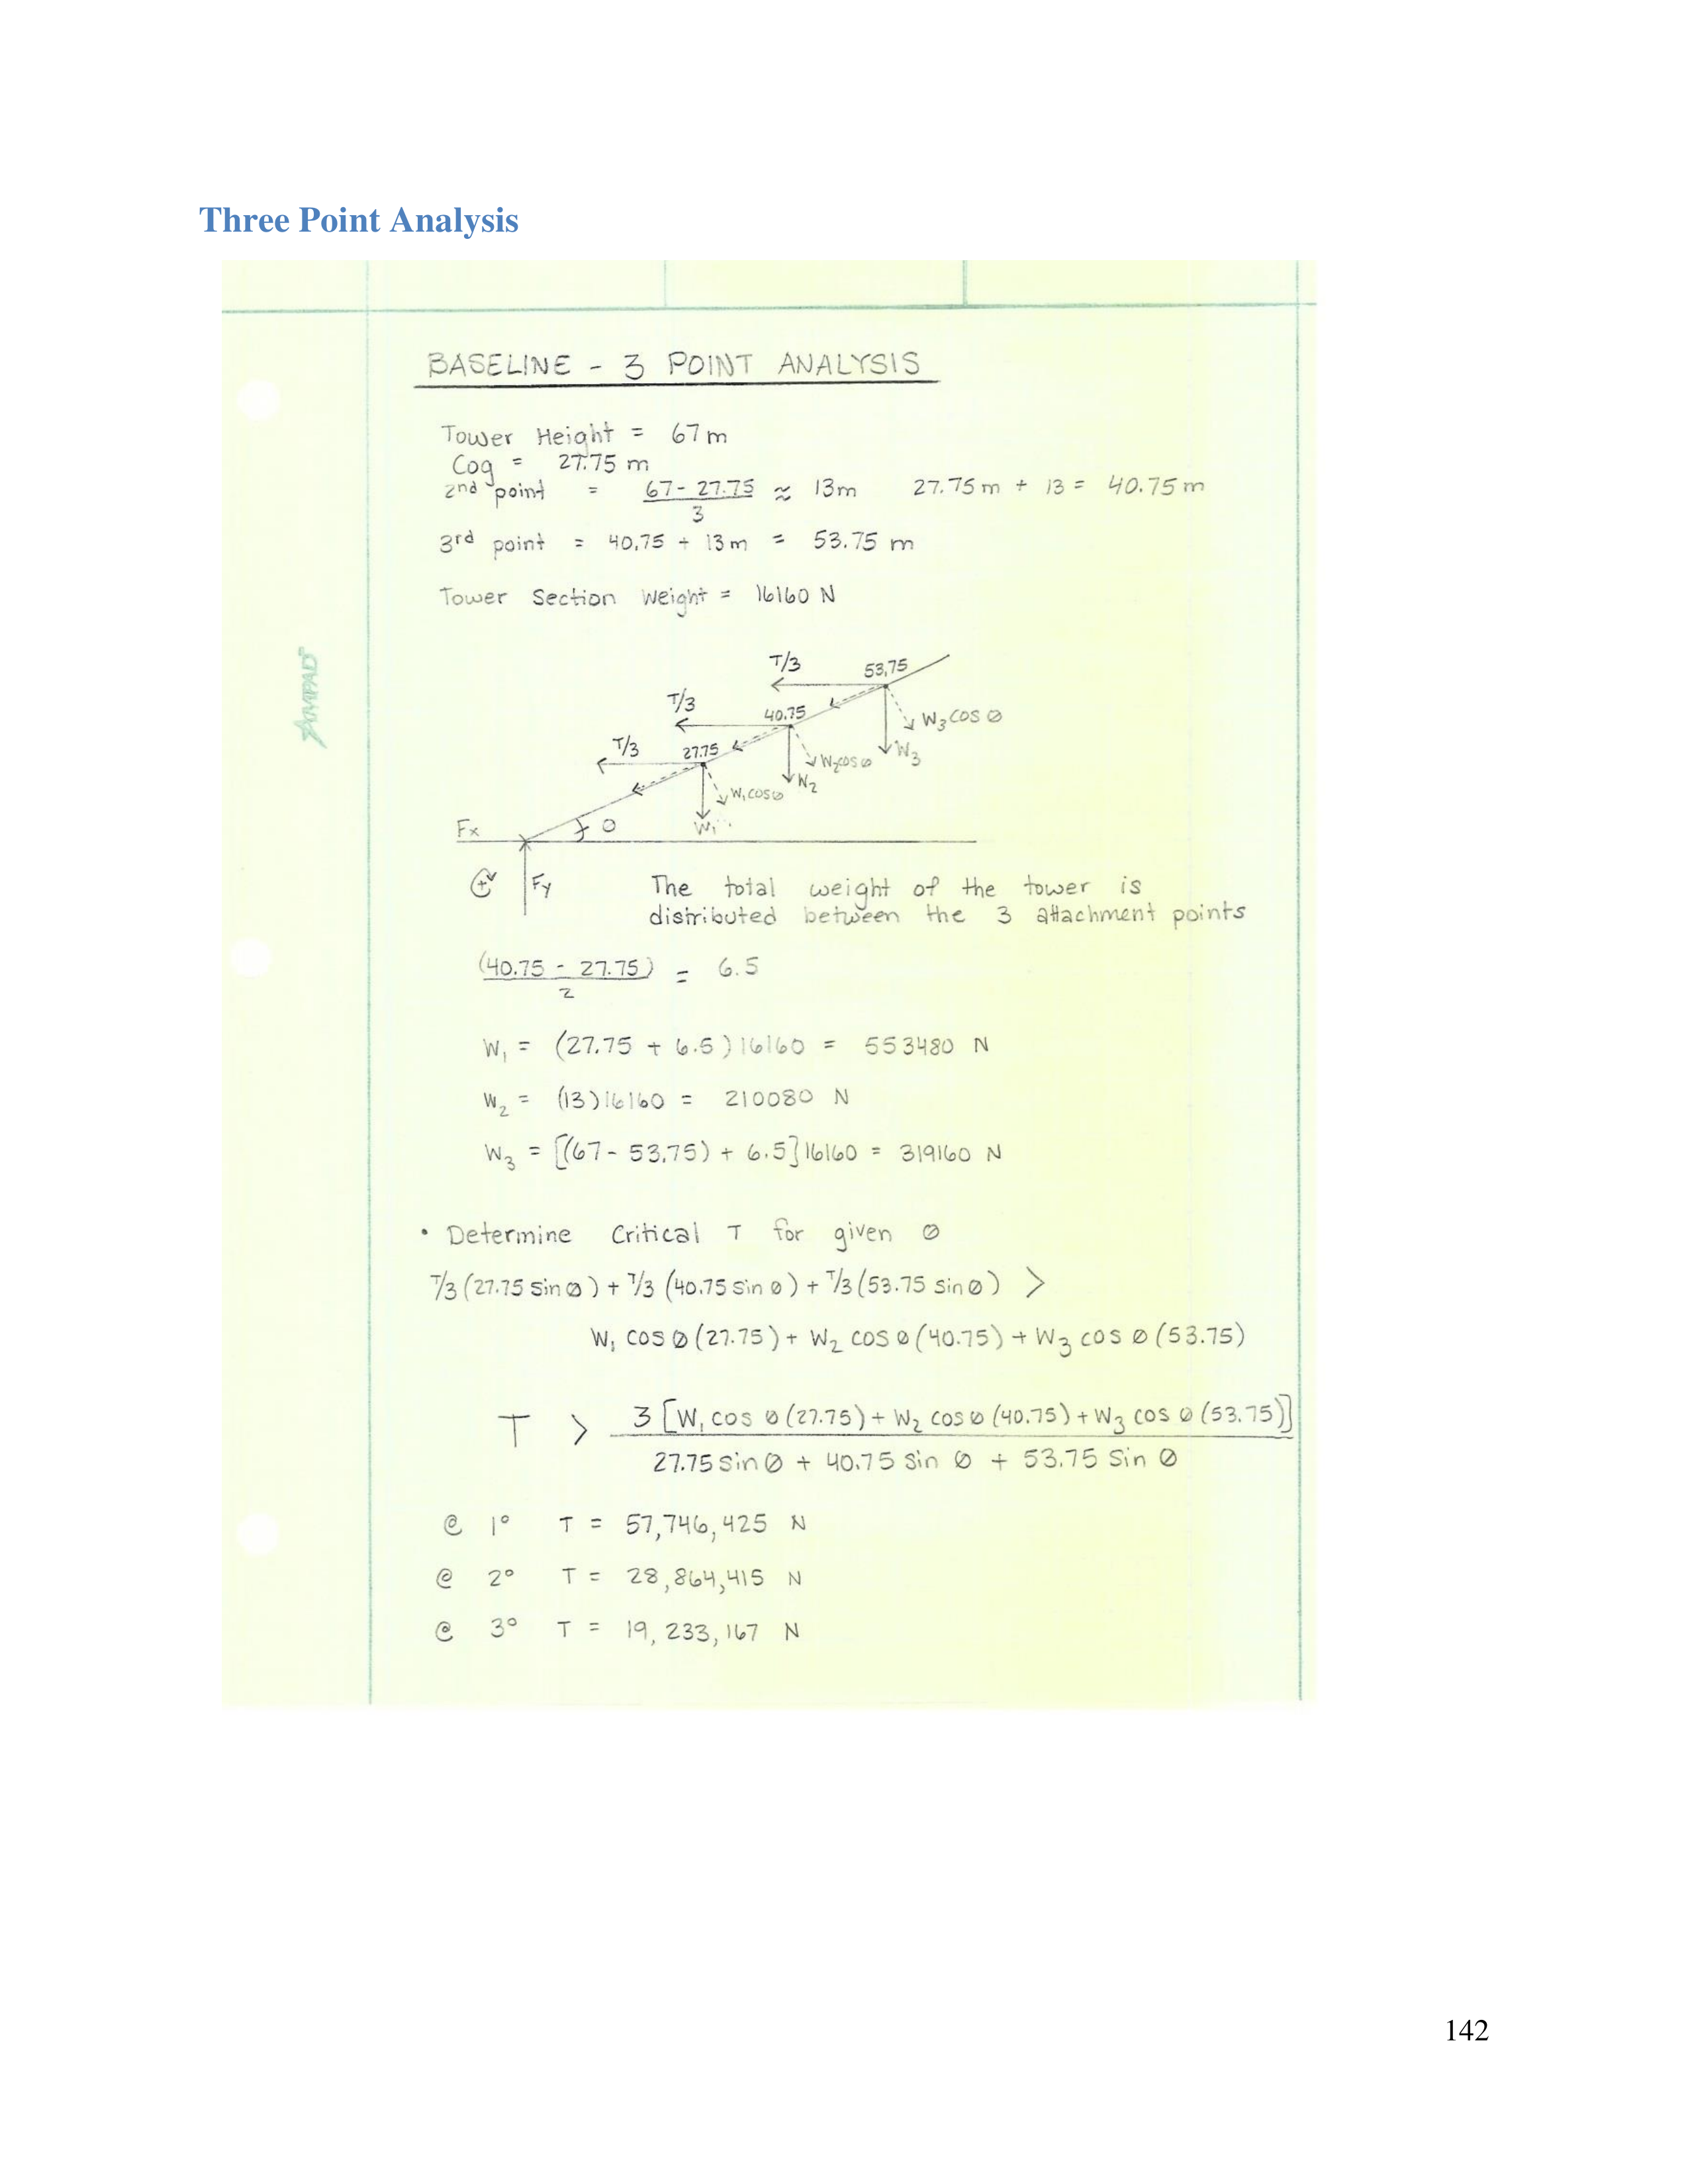 Three Point Analysis
BASELINE - 3 POINT ANALYSIS
Tower Height = 67 m
Cog = 27.75 m
2nd point = (67 - 27.75)/3 ≈ 13m 27.75 m + 13 = 40.75 m
3rd point = 40.75 + 13 m = 53.75 m
Tower Section Weight = 16160 N
T/3 53.75
T/3 40.75 W3 COS Ø
T/3 27.75 W2 COS Ø W3
W1 COS Ø W2
Fx Ø W1
+ Fy The total weight of the tower is
distributed between the 3 attachment points
(40.75 - 27.75)/2 = 6.5
W1 = (27.75 + 6.5)16160 = 553480 N
W2 = (13)16160 = 210080 N
W3 = [(67 - 53.75) + 6.5]16160 = 319160 N
• Determine Critical T for given Ø
T/3 (27.75 sin Ø) + T/3 (40.75 sin Ø) + T/3 (53.75 sin Ø) >
W1 COS Ø (27.75) + W2 COS Ø (40.75) + W3 COS Ø (53.75)
T > 3[W1 COS Ø (27.75) + W2 COS Ø (40.75) + W3 COS Ø (53.75)]
27.75 sin Ø + 40.75 sin Ø + 53.75 sin Ø
@ 1° T = 57,746,425 N
@ 2° T = 28,864,415 N
@ 3° T = 19,233,167 N
AMPAD
142